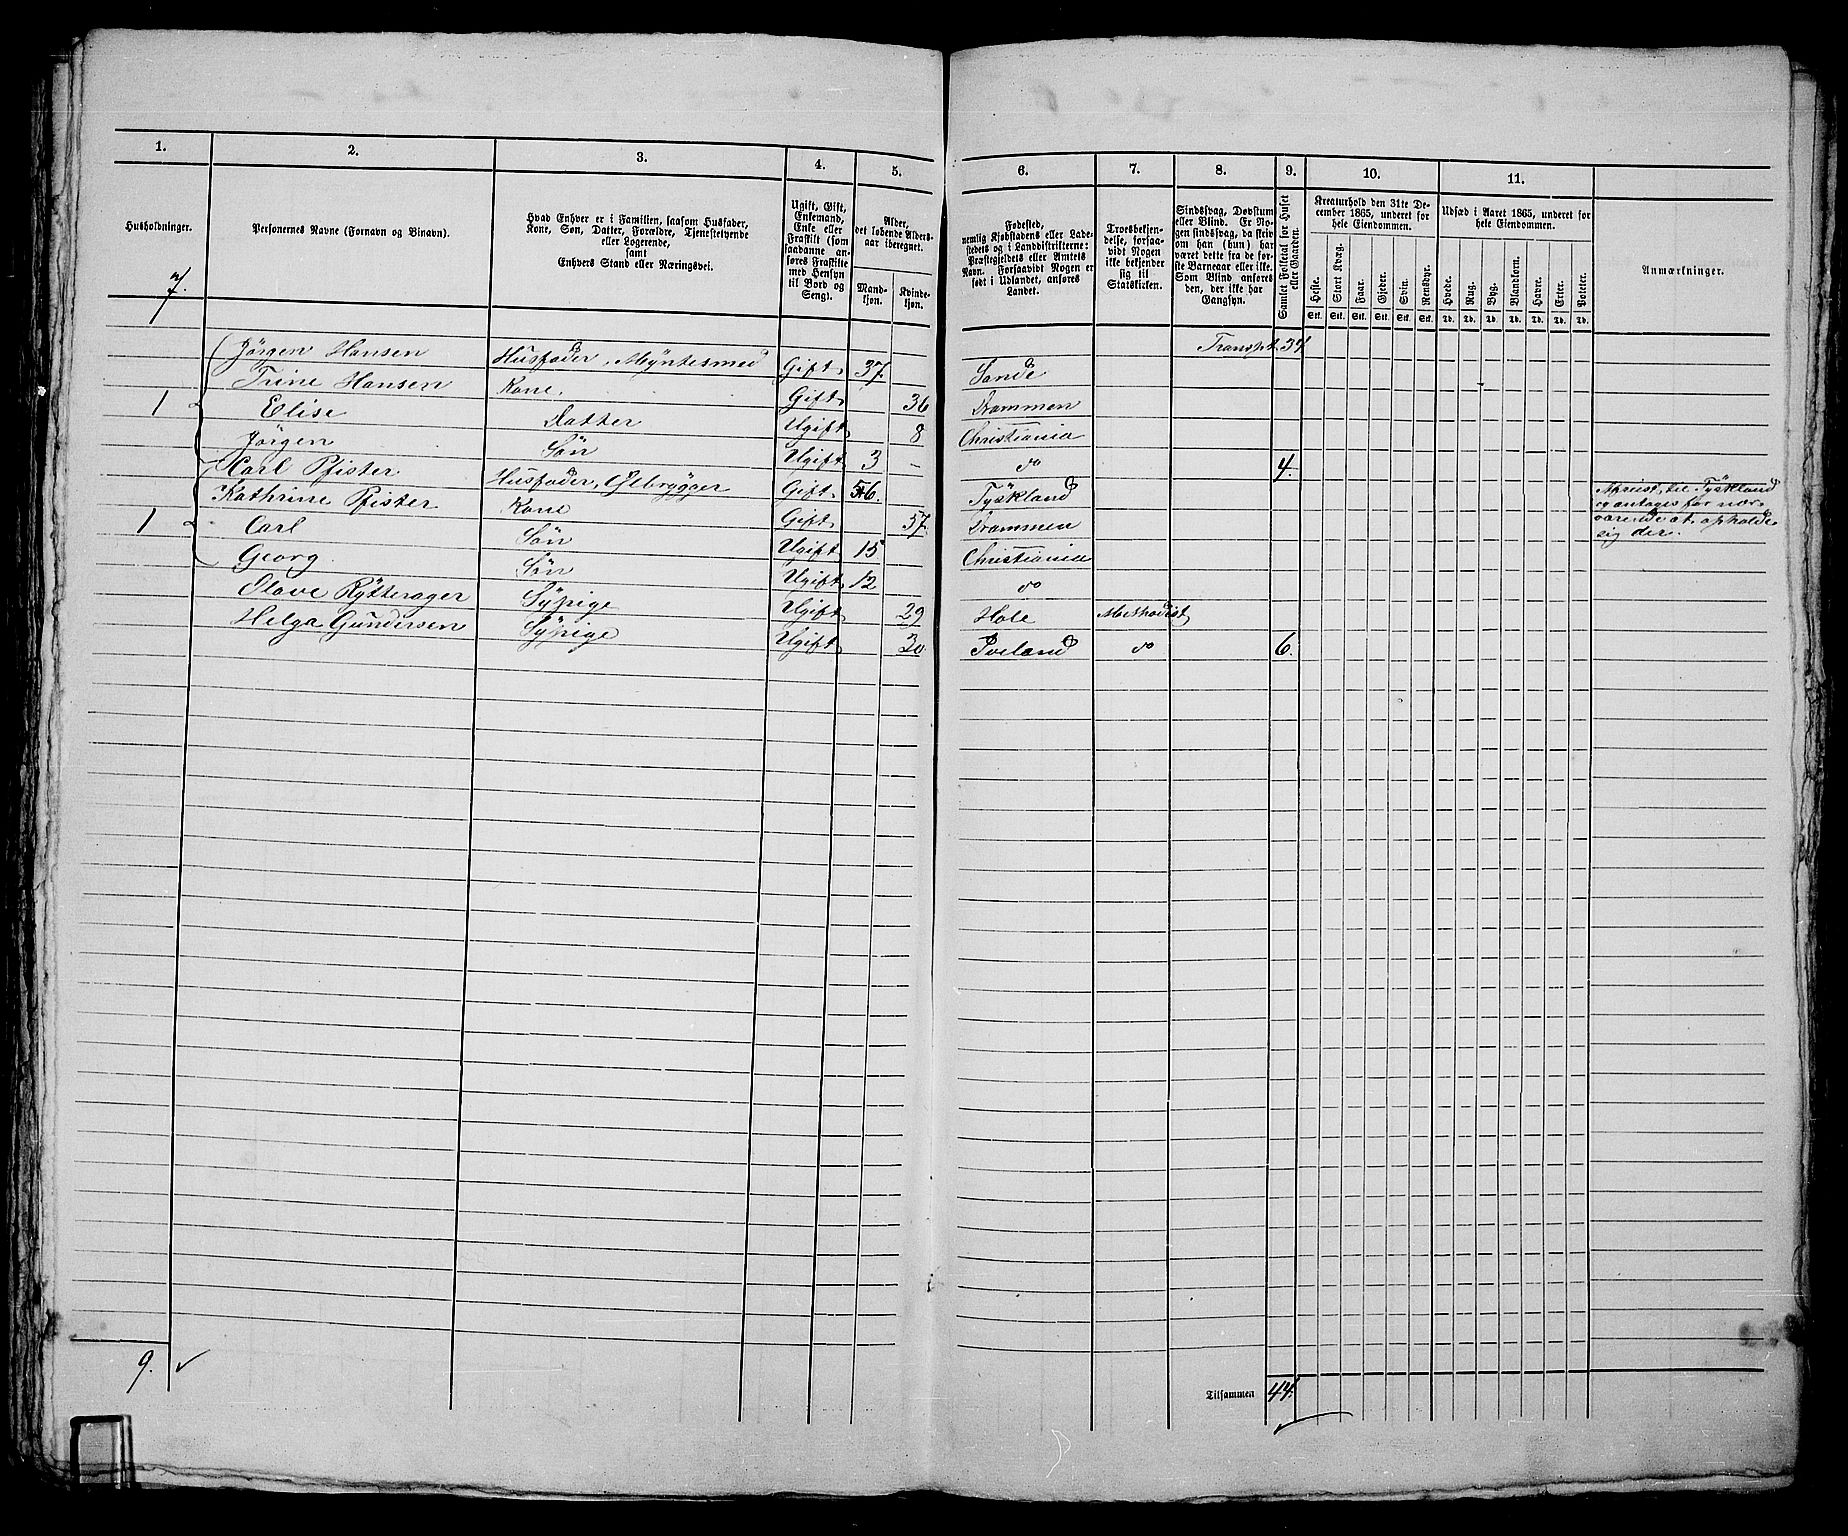 1. 2. 3. 4. 5. 6. 7. 8. 9. 10. 11.
Husholdninger.
Personernes Navne (Fornavn og Binavn).
Hvad Enhver er i Familien, saasom Husfader,
Kone, Søn, Datter, Forældre, Tjenestetyende
eller Logerende,
samt
Enhvers Stand eller Næringsvei.
Ugift, Gift,
Enkemand,
Enke eller
Fraskilt (som
saadanne an-
føres Fraskilte
med Hensyn
til Bord og
Seng).
Alder,
det løbende Alders-
aar iberegnet.
Mand-
kjøn.
Kvinde-
kjøn.
Fødested,
nemlig Kjøbstadens eller Lade-
stedets og i Landdistrikterne:
Præstegjeldets eller Amtets
Navn. Forsaavidt Nogen er
født i Udlandet, anføres
Landet.
Troesbekjen-
delse, forsaa-
vidt Nogen
ikke bekjender
sig til
Statskirken.
Sindssvag, Døvstum
eller Blind. Er No-
gen sindssvag, da skriv
om han (hun) har
været dette fra de før-
ste Barneaar eller ikke.
Som Blind anføres
den, der ikke har
Gangsyn.
Samlet Folketal for Huset
eller Gaarden.
Kreaturhold den 31te De-
cember 1865, underet for
hele Eiendommen.
Heste. Stort Kvæg. Faar. Gjeder. Svin. Rensdyr.
Stk. Stk. Stk. Stk. Stk. Stk.
Udsæd i Aaret 1865, underet for
hele Eiendommen.
Hvede. Rug. Byg. Blandkorn. Havre. Erter. Poteter.
Td. Td. Td. Td. Td. Td. Td.
Anmærkninger.
7.
Transpt. 34
Jörgen Hansen Husfader, Myntesmed Gift 37. Sande
Trine Hansen Kone. Gift 36 Drammen
1 Elise Datter Ugift 8 Christiania
Jörgen Søn Ugift 3 - do 4.
Carl Pfister Husfader, Ølbrygger Gift 56. Tyskland Afreist til Tyskland
Kathrine Pfister Kone Gift 57. Drammen og antages for nær-
1 Carl Søn Ugift 15 Christiania værende at opholde
Georg. Søn Ugift 12 do sig der.
Olave Rytterager Sypige Ugift 29 Hole Methodist
Helga Gundersen Sypige Ugift 30 Iveland do 6.
9. ✓
Tilsammen 44.